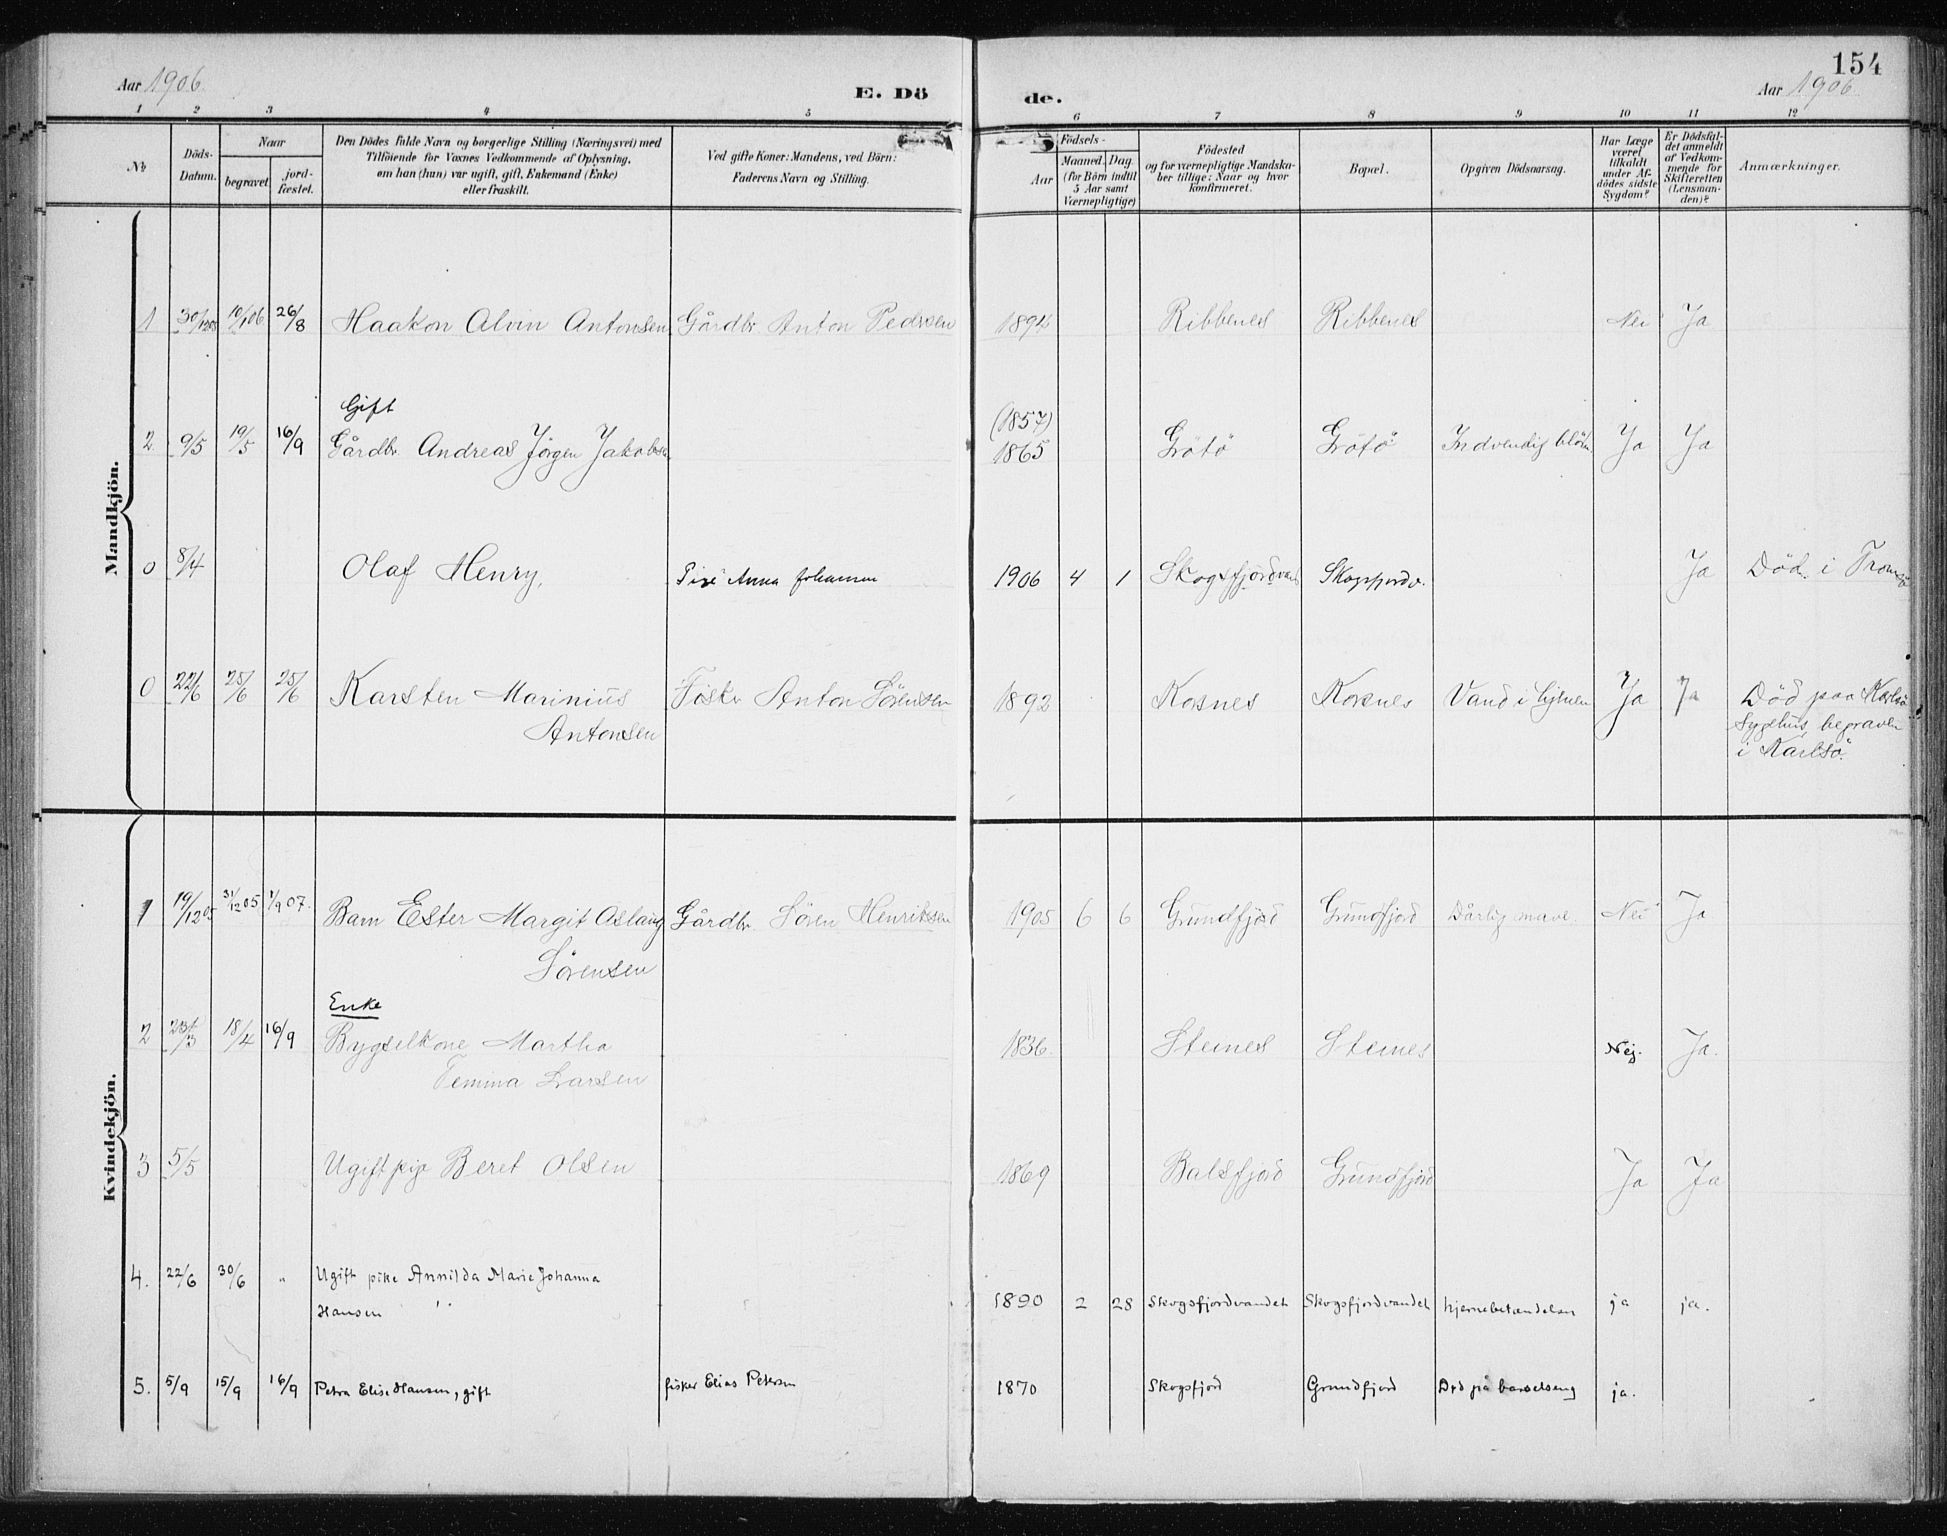 154
Aar 1906
E. Dö
de.
Aar 1906.
1 2 3 4 5 6 7 8 9 10 11 12
No.
Döds-
Datum.
Naar
begravet.
jord-
fæstet.
Den Dödes fulde Navn og borgerlige Stilling (Næringsvei) med
Tilföiende for Voxnes Vedkommende af Oplysning,
om han (hun) var ugift, gift, Enkemand (Enke)
eller fraskilt.
Ved gifte Koner: Mandens, ved Börn:
Faderens Navn og Stilling.
Födsels-
Aar
Maaned. Dag.
(for Börn indtil
5 Aar samt
Værnepligtige)
Födested
og for værnepligtige Mandska-
ber tillige: Naar og hvor
konfirmeret.
Bopæl.
Opgiven Dödsaarsag.
Har Læge
været
tilkaldt
under Af-
dödes sidste
Sygdom?
Er Dödsfal-
det anmeldt
af Vedkom-
mende for
Skifteretten
(Lensman-
den)?
Anmærkninger.
Mandkjön.
1 30/1205 10/1 06 26/8 Haakon Alvin Antonsen Gårdbr Anton Pedersen 1894 Ribbenes Ribbenes Nei Ja
Gift (1857)
2 9/5 19/5 16/9 Gårdbr Andreas Jörgen Jakobsen 1865 Grötö Grötö Indvendig Ja Ja
0 8/4 Olaf Henry, Pige Anna Johansen 1906 4 1 Skogsfjordvand Skogsfjordv. Ja Död i Tromsö
0 22/6 25/6 25/6 Karsten Marinius Fisker Anton Sörensen 1892 Kosnes Korsnes Vand i hjernen Ja Ja Död paa Karlsö
Antonsen Sygehus, begraven
i Karlsö.
Kvindekjön.
1 19/12 05 31/12 05 1/9 07. Barn Ester Margit Aslaug Gårdbr. Sören Henriksen 1905 6 6 Grundfjord Grundfjord Dårlig mave Nei Ja
Sörensen
Enke
2 23/3 18/4 16/9 Bygselkone Martha 1836. Steines Steines Nej. Ja.
Femina Larsen
3 5/5 Ugift pige Beret Olsen 1869 Balsfjord Grundfjord Ja Ja
4. 22/6 30/6 " Ugift pike Annilda Marie Johanna
Hansen 1890 2 28 Skogsfjordvandet Skogsfjordvandet hjernebetændelsen ja ja.
5. 5/9 15/9 16/9 Petra Elise Hansen, gift fisker Elias Petersen 1870 Skogsfjord Grundfjord Död på barselseng ja.